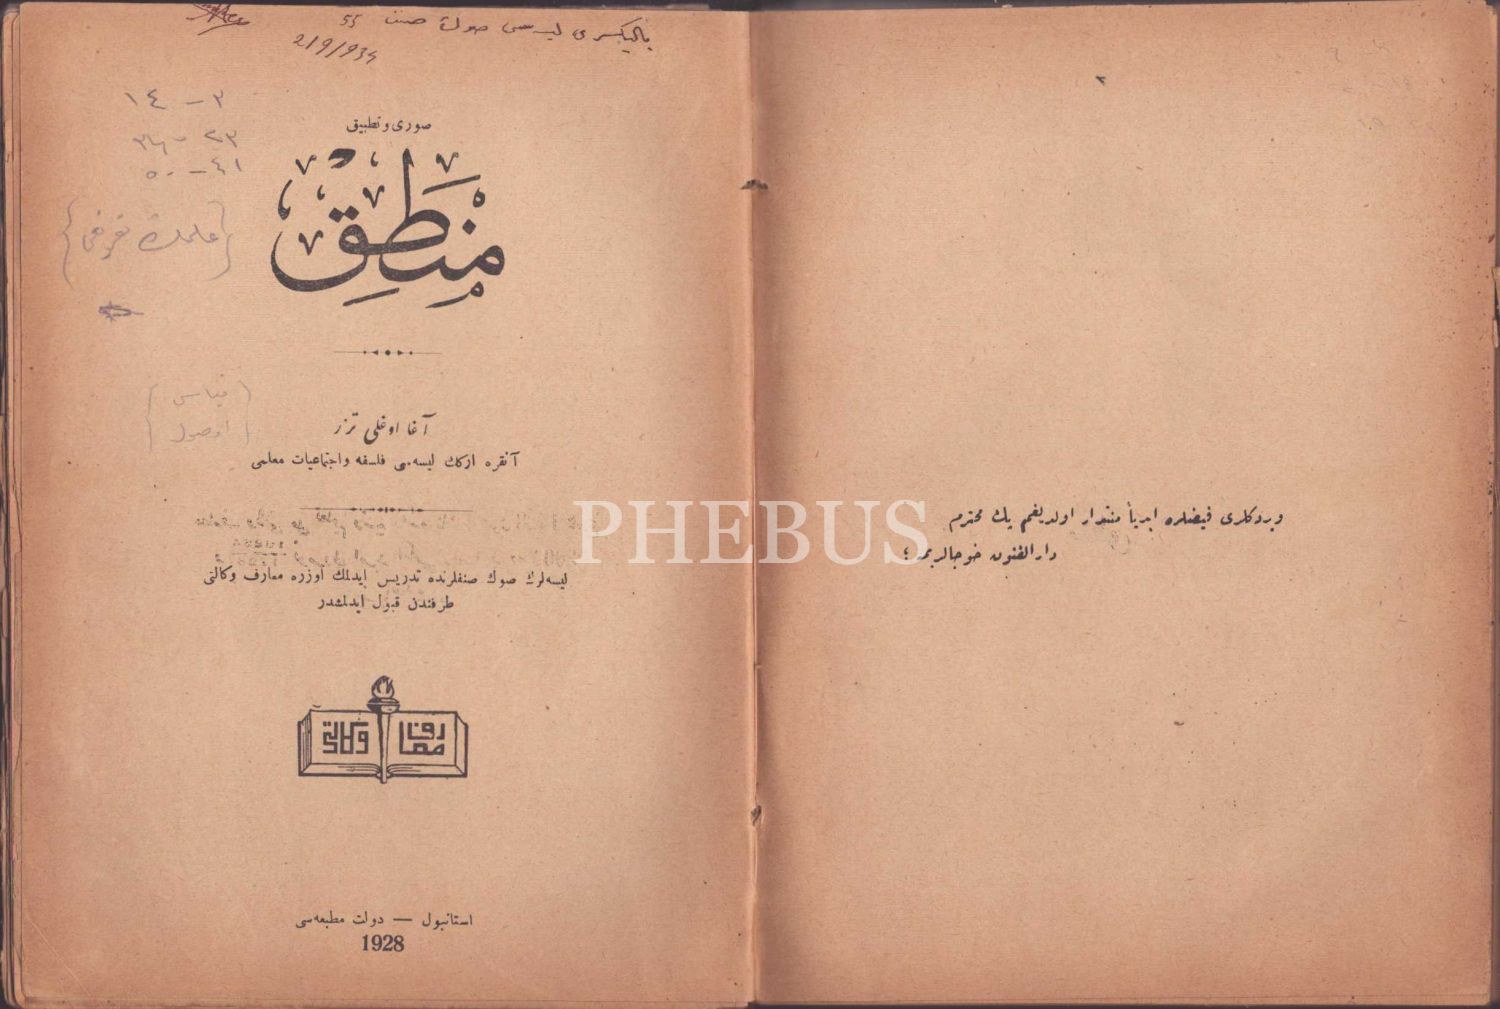 بالیکسری لیسه‌سی صوڭ صنف 55
2/9/934
۱٤ — ۳
۳٦ — ۲۳
۵۰ — ٤۱
صوری و تطبیقی
منطق
آغا اوغلی تزر
قیاس
اصول
آنقره ارکك لیسه‌سی فلسفه و اجتماعیات معلمی
لیسه‌لرك صوڭ صنفلرنده تدریس ایدلمك اوزره معارف وكالتی
طرفندن قبول ایدلمشدر
معارف وكالتی
استانبول — دولت مطبعه‌سی
1928
ویردکلری فیضلره ابدیاً منتدار اولدیغم پك محترم
دارالفنون خوجالریمه ؛
PHEBUS